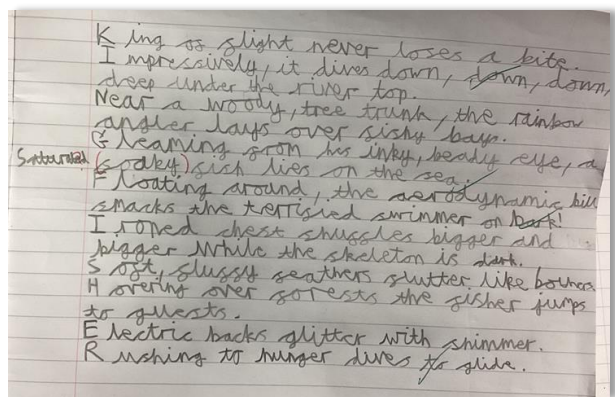 King of flight never loses a bite.
Impressively, it dives down, down, down,
deep under the river top.
Near a woody, tree trunk, the rainbow
angler lays over fishy bays.
Gleaming from his inky, beady eye, a
Saturated (soaky) fish lies on the sea.
Floating around, the aerodynamic bill
smacks the terrified swimmer on bark!
Ironed chest snuggles bigger and
bigger While the skeleton is dark.
Soft, fluffy feathers flutter like
Hovering over forests the fisher jumps
to guests.
Electric backs glitter with shimmer.
Rushing to hunger dives to glide.